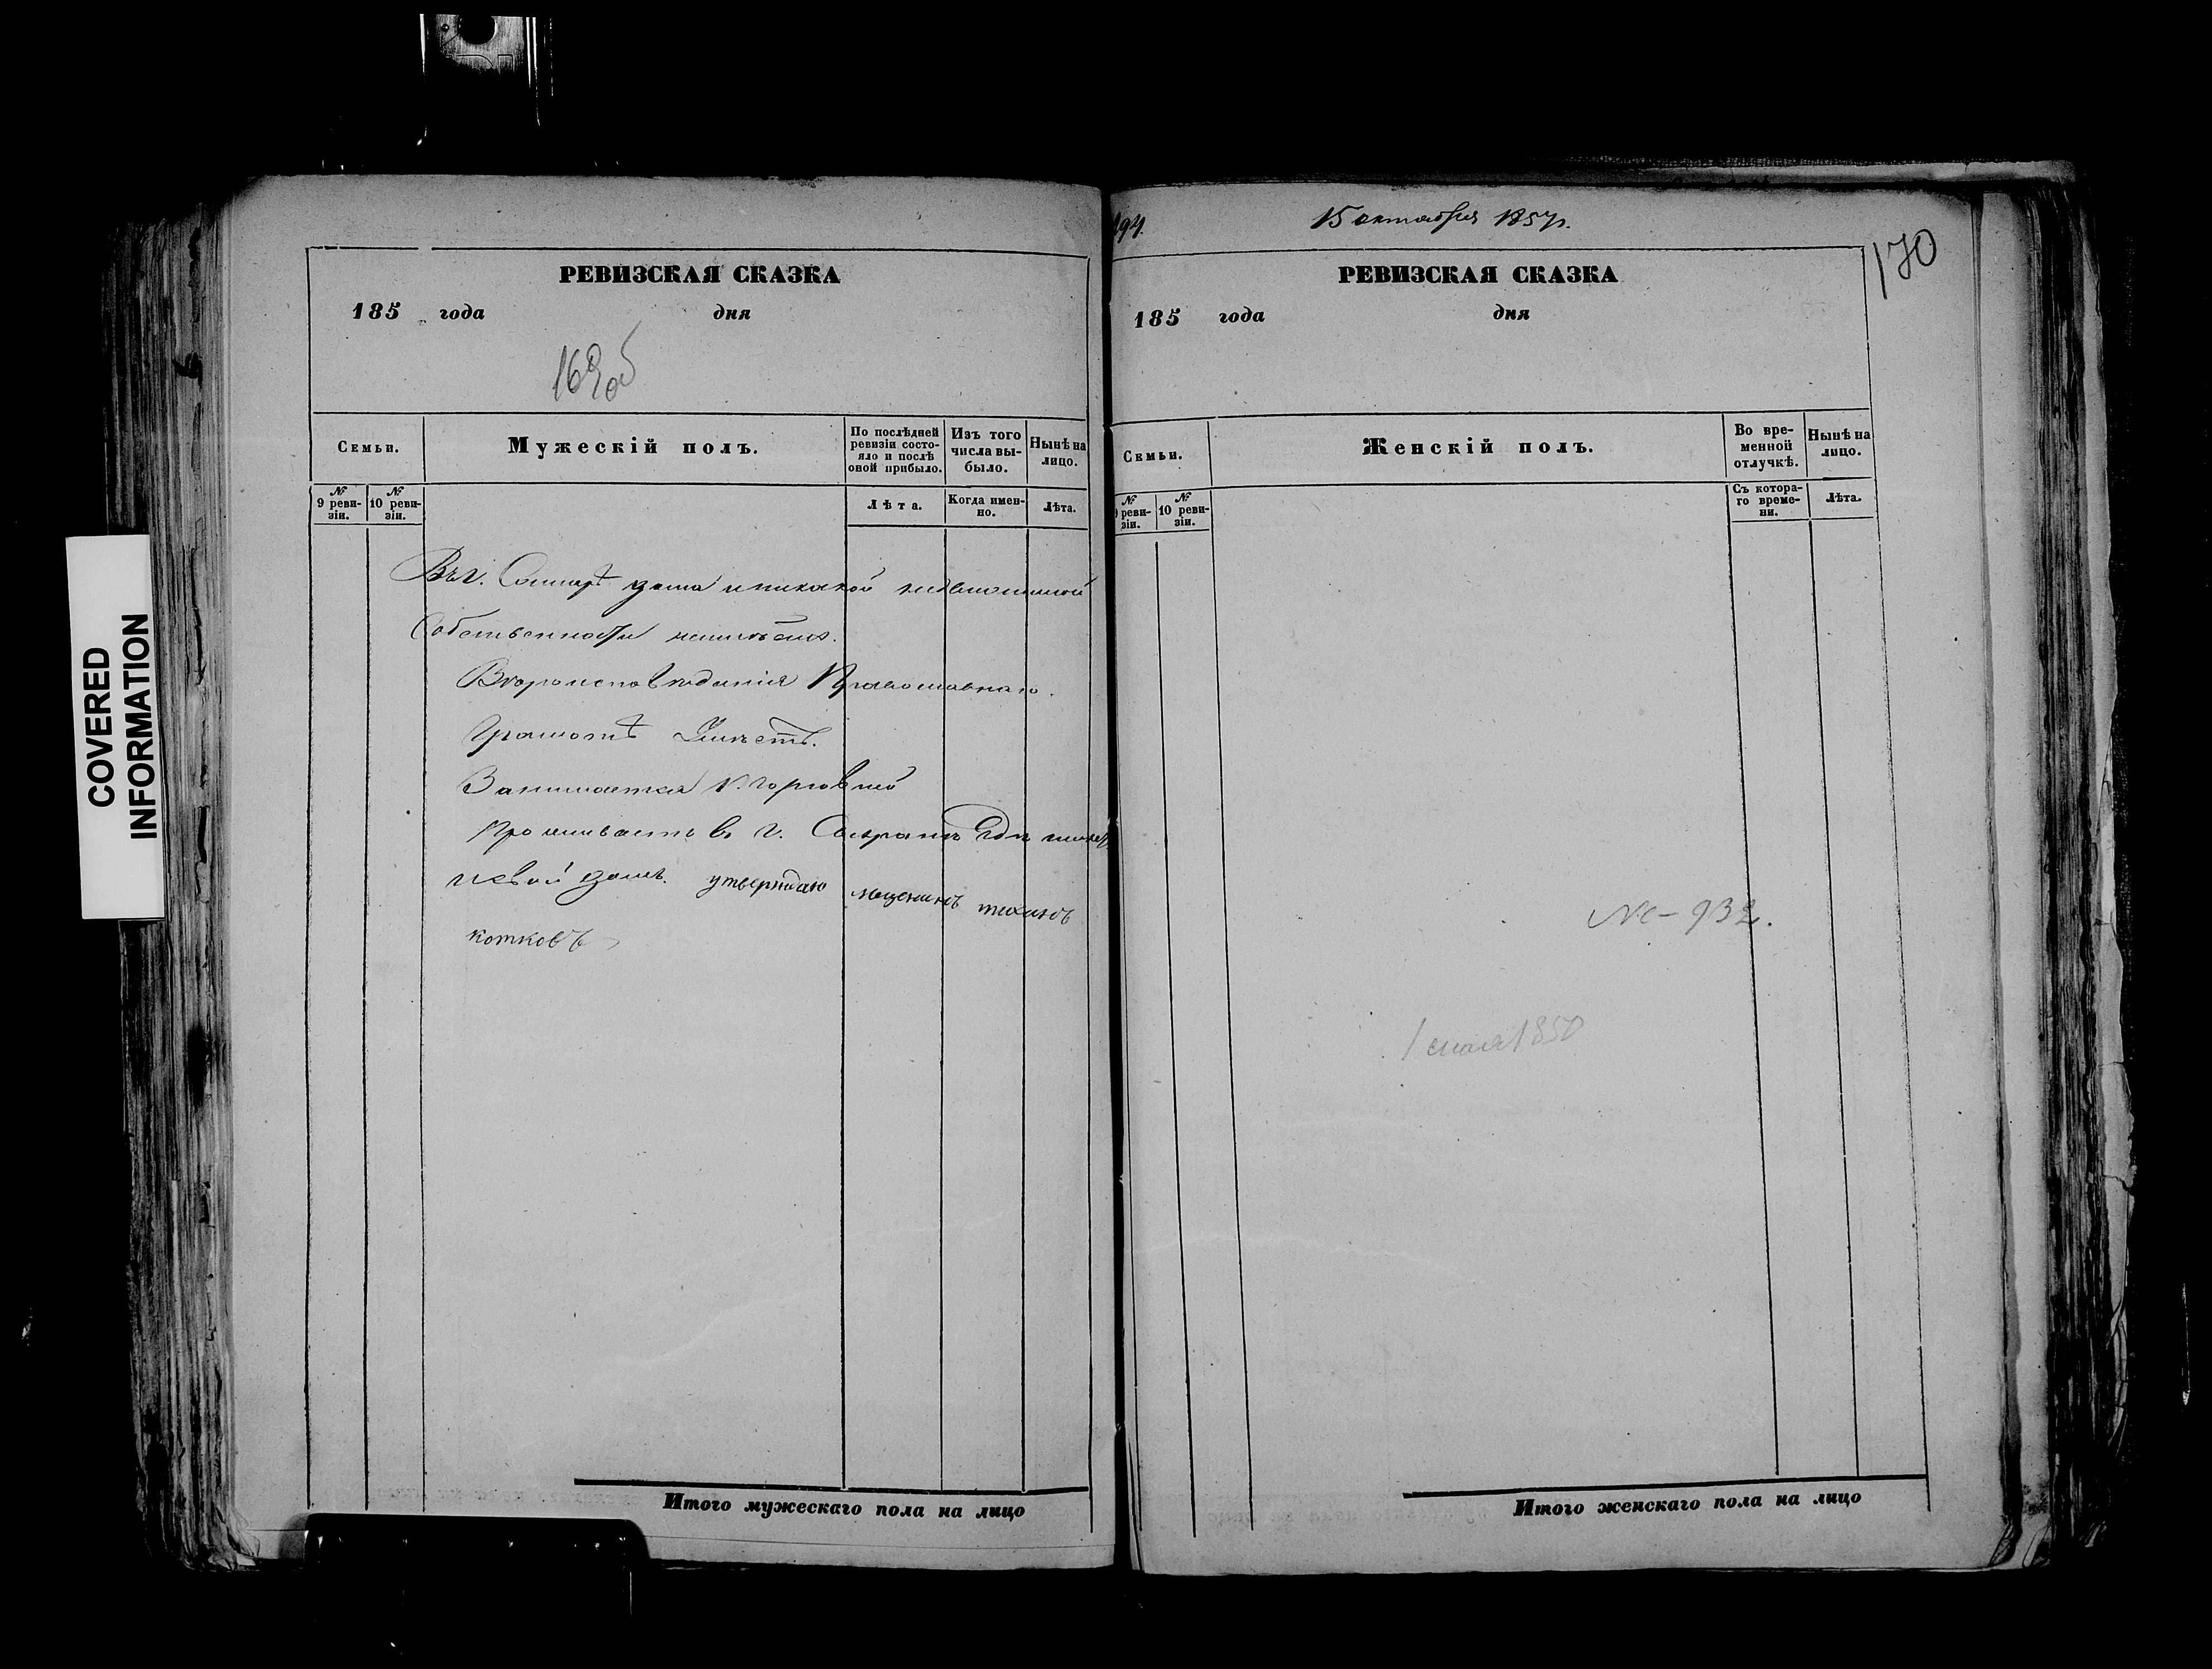 COVERED
INFORMATION
РЕВИЗСКАЯ СКАЗКА
185 года дня
169об
Семьи.
Мужескій полъ.
По послѣдней ревизіи состояло и послѣ оной прибыло.
Изъ того числа выбыло.
Нынѣ на лицо.
№ 9 ревизіи.
№ 10 ревизіи.
Лѣта.
Когда именно.
Лѣта.
Въ г. Самарѣ дома и никакой недвижимой
Собственности неимѣетъ.
Вѣроисповѣданія Православнаго.
Грамотѣ Умѣетъ.
Занимается торговлей
Проживаетъ въ г. Сызрани Гдѣ имѣетъ
и свой домъ. утверждаю мещенинъ тихинъ
котковъ
Итого мужескаго пола на лицо
194.
15 октября 1857г.
170
РЕВИЗСКАЯ СКАЗКА
185 года дня
Семьи.
Женскій полъ.
Во временной отлучкѣ.
Нынѣ на лицо.
№ 9 ревизіи.
№ 10 ревизіи.
Съ котораго времени.
Лѣта.
№-932.
1850
Итого женскаго пола на лицо